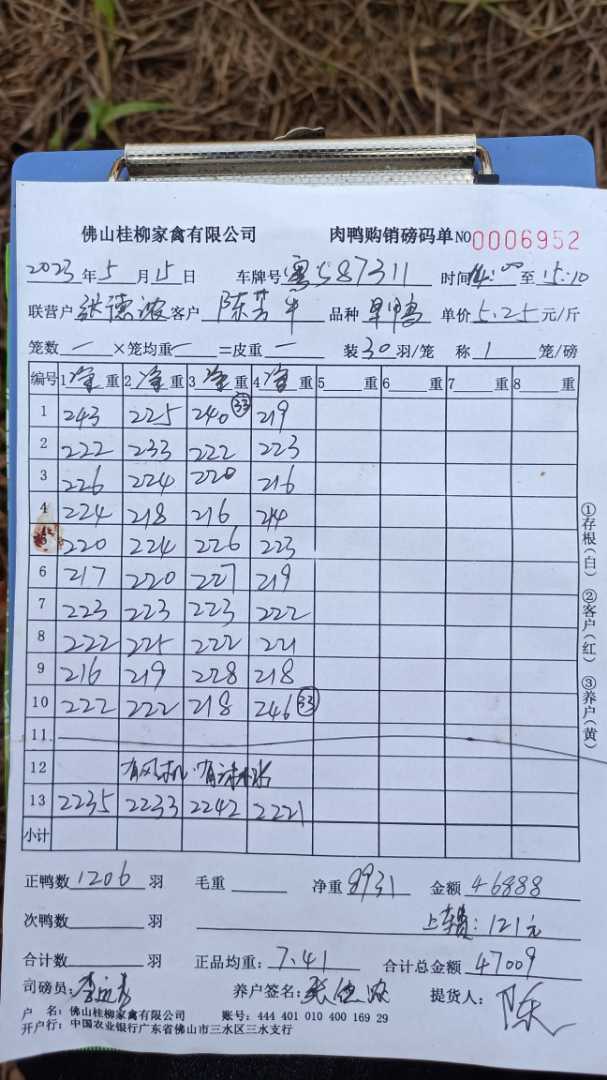 佛山桂柳家禽有限公司 肉鸭购销磅码单 NO 0006952
2023年5月15日 车牌号 粤S87311 时间 14:00 至 15:10
联营户 张德浓 客户 陈芳牛 品种 单价 5.25 元/斤
笼数 一 ×笼均重 一 =皮重 一 装 30 羽/笼 称 1 笼/磅
编号 1 净 重 2 净 重 3 净 重 4 净 重 5 重 6 重 7 重 8 重
1 243 225 240 33 219
2 222 233 222 223
3 226 224 220 216
4 224 218 216 214
5 220 224 226 223
6 217 220 227 219
7 223 223 223 222
8 222 225 222 221
9 216 219 228 218
10 222 222 218 246 33
11
12 有风机
13 2235 2233 2242 2221
小计
①存根(白) ②客户(红) ③养户(黄)
正鸭数 1206 羽 毛重 净重 8931 金额 46888
次鸭数 羽 上车费: 121元
合计数 羽 正品均重: 7.41 合计总金额 47009
司磅员: 养户签名: 张德浓 提货人: 陈
户 名: 佛山桂柳家禽有限公司 账号: 444 401 010 400 169 29
开户行: 中国农业银行广东省佛山市三水区三水支行